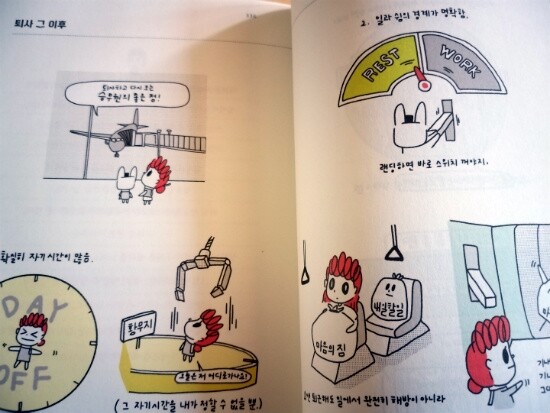 퇴사 그 이후
퇴사하고 다시 보는
승무원의 좋은 점!
확실히 자기시간이 많음.
DAY
OFF
황무지
오늘은 저 어디로가나요!
( 그 자기시간을 내가 정할 수 없을 뿐.)
2. 일과 쉼의 경계가 명확함.
REST
WORK
랜딩하면 바로 스위치 꺼야지.
마음의 짐
내일할일
퇴근해도 일에서 완전히 해방이 아니라